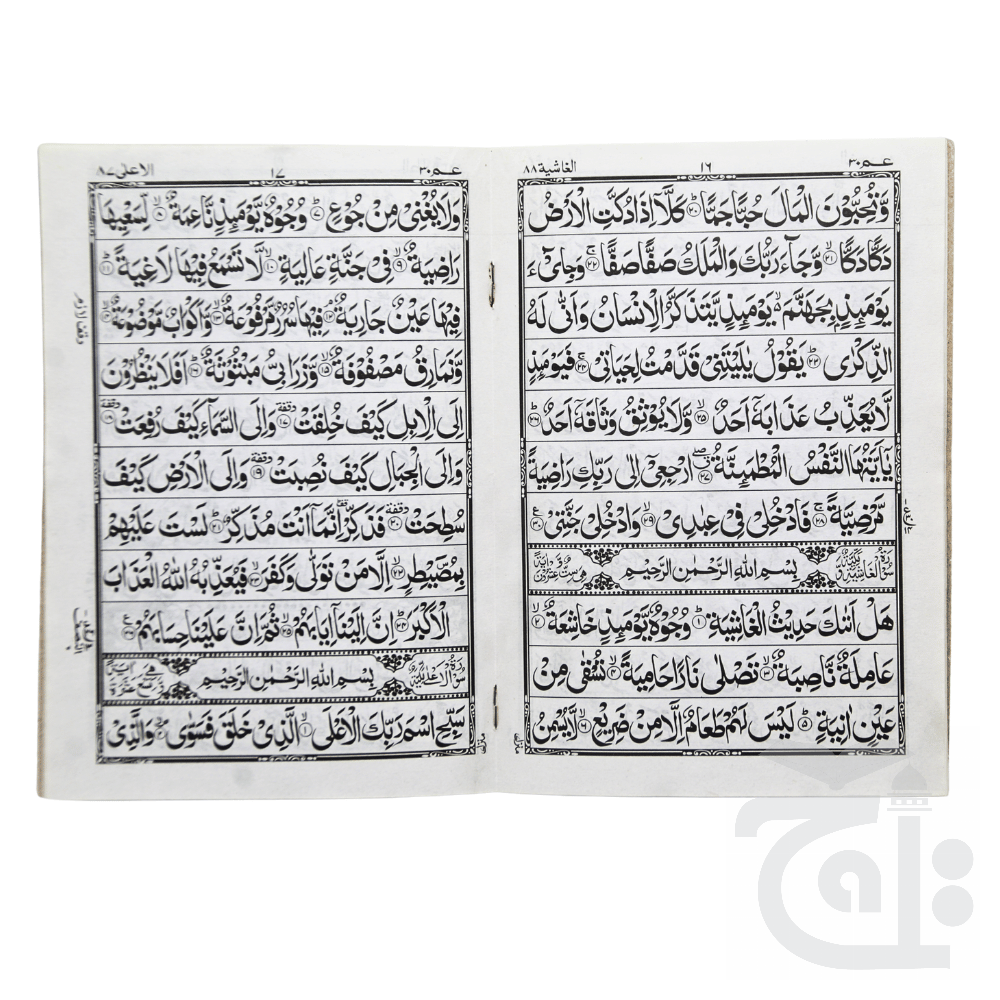 عـم ٣٠ ١٦ الغاشية ٨٨
وَّتُحِبُّوْنَ الْمَالَ حُبًّا جَمًّا ۟ؕ۲۰ كَلَّاۤ اِذَا دُكَّتِ الْاَرْضُ
دَكًّا دَكًّا ۙ۲۱ وَّجَآءَ رَبُّكَ وَالْمَلَكُ صَفًّا صَفًّا ۚ۲۲ وَجِایْٓءَ
يَوْمَىِٕذٍۭ بِجَهَنَّمَ ۙ۬ يَوْمَىِٕذٍ يَّتَذَكَّرُ الْاِنْسَانُ وَاَنّٰى لَهُ
الذِّكْرٰى ؕ۲۳ يَقُوْلُ يٰلَيْتَنِيْ قَدَّمْتُ لِحَيَاتِيْ ۚ۲۴ فَيَوْمَىِٕذٍ
لَّا يُعَذِّبُ عَذَابَهٗۤ اَحَدٌ ۙ۲۵ وَّلَا يُوْثِقُ وَثَاقَهٗۤ اَحَدٌ ؕ۲۶
يٰۤاَيَّتُهَا النَّفْسُ الْمُطْمَىِٕنَّةُ ۲۷ ارْجِعِيْۤ اِلٰى رَبِّكِ رَاضِيَةً
مَّرْضِيَّةً ۚ۲۸ فَادْخُلِيْ فِيْ عِبٰدِيْ ۙ۲۹ وَادْخُلِيْ جَنَّتِيْ ۳۰
سُوْرَةُ الْغَاشِيَةِ مَكِّيَّةٌ بِسْمِ اللّٰهِ الرَّحْمٰنِ الرَّحِيْمِ وَّهِيَ سِتٌّ وَّعِشْرُوْنَ اٰيَةً
هَلْ اَتٰىكَ حَدِيْثُ الْغَاشِيَةِ ؕ۱ وُجُوْهٌ يَّوْمَىِٕذٍ خَاشِعَةٌ ۙ۲
عَامِلَةٌ نَّاصِبَةٌ ۙ۳ تَصْلٰى نَارًا حَامِيَةً ۙ۴ تُسْقٰى مِنْ
عَيْنٍ اٰنِيَةٍ ؕ۵ لَيْسَ لَهُمْ طَعَامٌ اِلَّا مِنْ ضَرِيْعٍ ۙ۶ لَّا يُسْمِنُ
عـم ٣٠ ١٧ الاعلى ٨٧
وَلَا يُغْنِيْ مِنْ جُوْعٍ ؕ۷ وُجُوْهٌ يَّوْمَىِٕذٍ نَّاعِمَةٌ ۙ۸ لِّسَعْيِهَا
رَاضِيَةٌ ۙ۹ فِيْ جَنَّةٍ عَالِيَةٍ ۙ۱۰ لَّا تَسْمَعُ فِيْهَا لَاغِيَةً ؕ۱۱
فِيْهَا عَيْنٌ جَارِيَةٌ ۘ۱۲ فِيْهَا سُرُرٌ مَّرْفُوْعَةٌ ۙ۱۳ وَّاَكْوَابٌ مَّوْضُوْعَةٌ ۙ۱۴
وَّنَمَارِقُ مَصْفُوْفَةٌ ۙ۱۵ وَّزَرَابِيُّ مَبْثُوْثَةٌ ؕ۱۶ اَفَلَا يَنْظُرُوْنَ
اِلَى الْاِبِلِ كَيْفَ خُلِقَتْ ۱۷ وقفة وَاِلَى السَّمَآءِ كَيْفَ رُفِعَتْ ۱۸ وقفة
وَاِلَى الْجِبَالِ كَيْفَ نُصِبَتْ ۱۹ وقفة وَاِلَى الْاَرْضِ كَيْفَ
سُطِحَتْ ۲۰ وقفة فَذَكِّرْ اِنَّمَاۤ اَنْتَ مُذَكِّرٌ ؕ۲۱ لَسْتَ عَلَيْهِمْ
بِمُصَۜيْطِرٍ ۙ۲۲ اِلَّا مَنْ تَوَلّٰى وَكَفَرَ ۙ۲۳ فَيُعَذِّبُهُ اللّٰهُ الْعَذَابَ
الْاَكْبَرَ ؕ۲۴ اِنَّ اِلَيْنَاۤ اِيَابَهُمْ ۙ۲۵ ثُمَّ اِنَّ عَلَيْنَا حِسَابَهُمْ ۲۶
سُوْرَةُ الْاَعْلٰى مَكِّيَّةٌ بِسْمِ اللّٰهِ الرَّحْمٰنِ الرَّحِيْمِ
سَبِّحِ اسْمَ رَبِّكَ الْاَعْلَى ۙ۱ الَّذِيْ خَلَقَ فَسَوّٰى ۲ وَالَّذِيْ
تاج